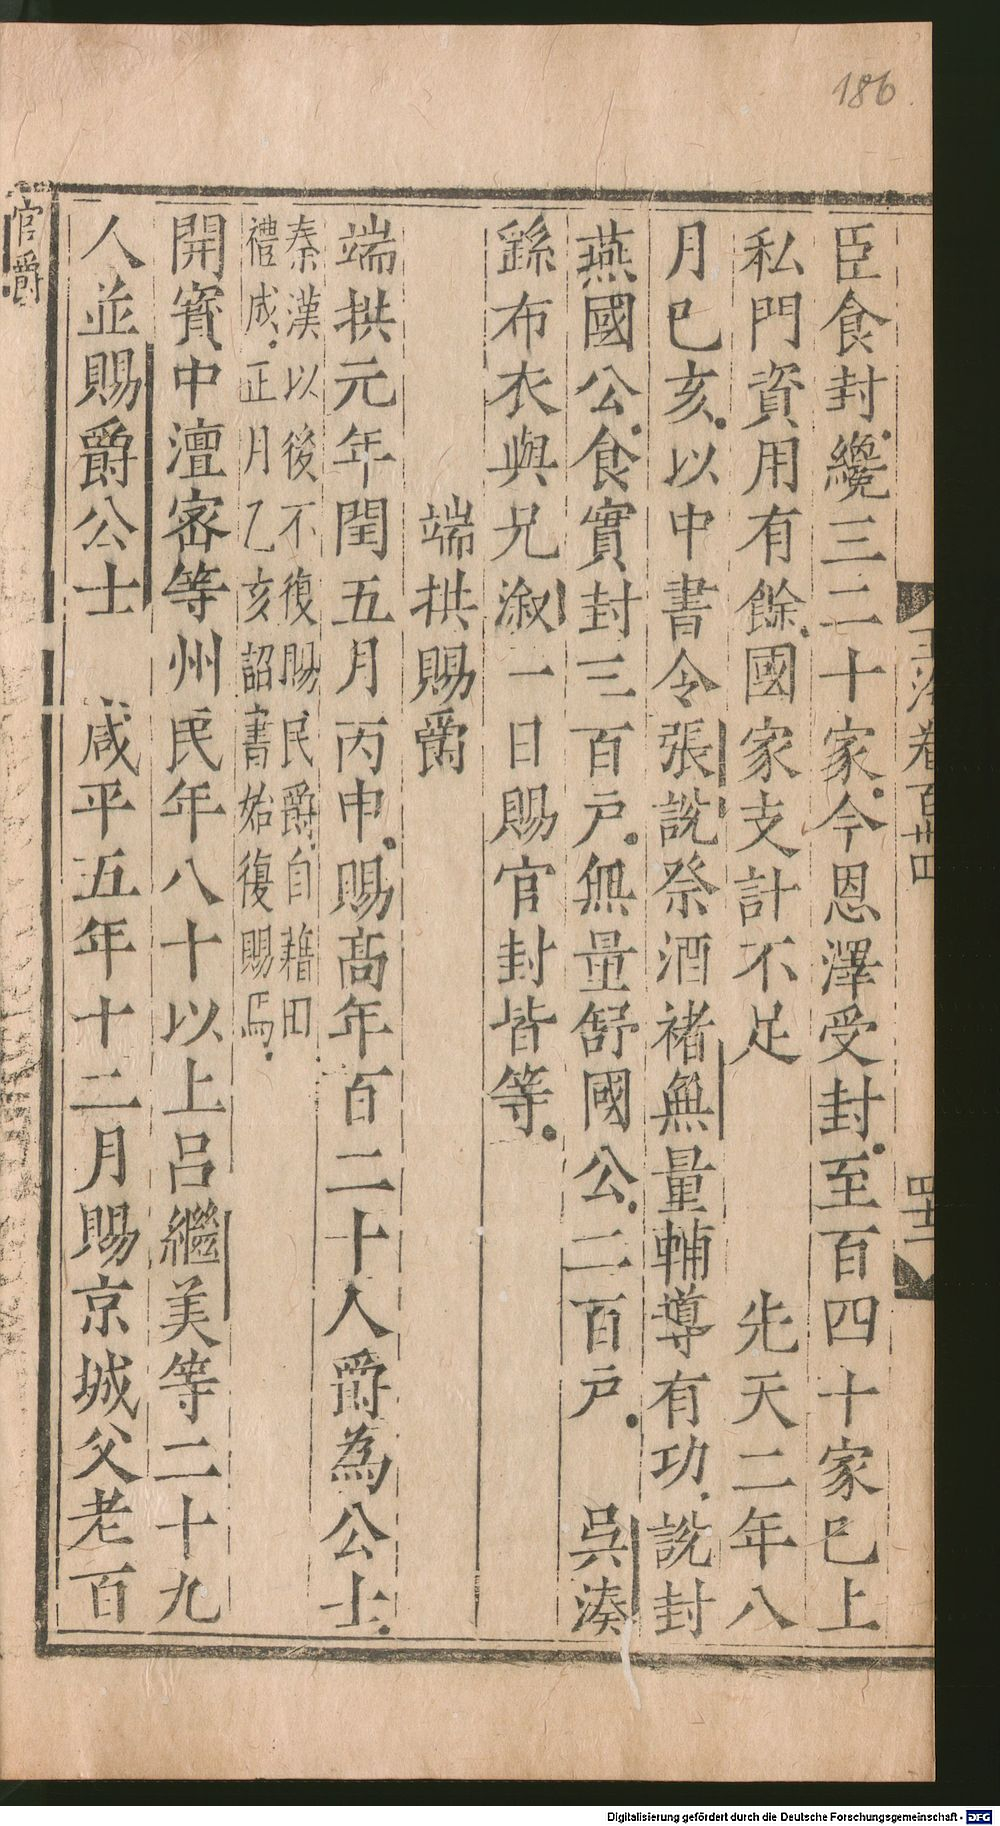 186
玉海卷百卅四
四十二
臣食封纔三二十家今恩澤受封至百四十家已上
私門資用有餘國家支計不足 先天二年八
月已亥以中書令張說祭酒褚無量輔導有功說封
燕國公食實封三百户無量舒國公二百户 吳湊
繇布衣與兄溆一日賜官封皆等
端拱賜爵
端拱元年閏五月丙申賜高年百二十人爵為公士
秦漢以後不復賜民爵自藉田
禮成正月乙亥詔書始復賜焉
開寳中澶密等州民年八十以上呂繼美等二十九
人並賜爵公士 咸平五年十二月賜京城父老百
官爵
Digitalisierung gefördert durch die Deutsche Forschungsgemeinschaft - DFG